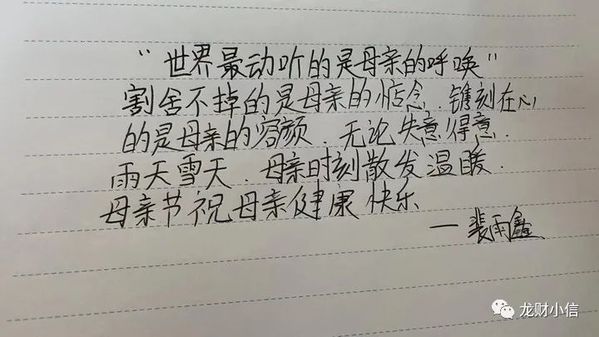 "世界最动听的是母亲的呼唤"
割舍不掉的是母亲的惦念.镌刻在心
的是母亲的容颜.无论失意得意.
雨天雪天.母亲时刻散发温暖.
母亲节祝母亲健康快乐
—裴雨鑫
龙财小信